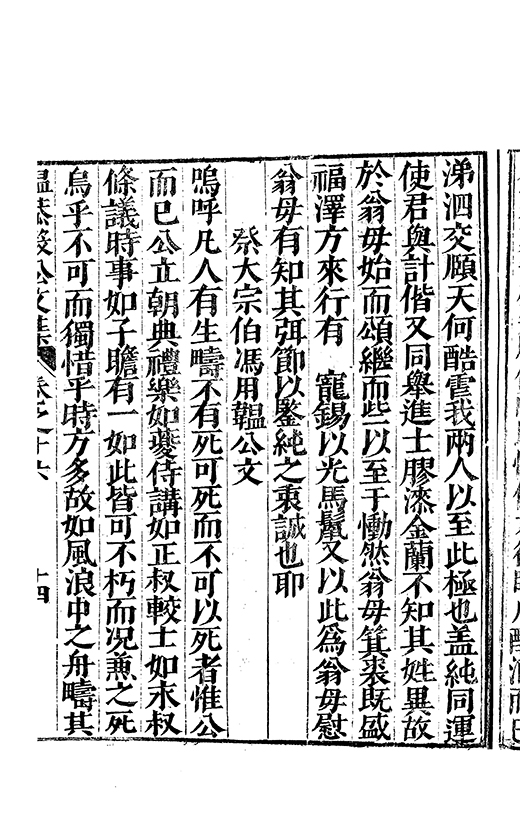 涕泗交頤天何酷霣我兩人以至此極也盖純同運
使君與計偕又同舉進士膠漆金蘭不知其姓異故
於翁母始而頌繼而些以至于慟然翁母箕裘既盛
福澤方來行有　寵錫以光馬鬣又以此為翁母慰
翁母有知其弭節以鑒純之衷誠也耶
祭大宗伯馮用韞公文
嗚呼凡人有生疇不有死可死而不可以死者惟公
而已公立朝典禮樂如夔侍講如正叔較士如永叔
條議時事如子瞻有一如此皆可不朽而况兼之死
烏乎不可而獨惜乎時方多故如風浪中之舟疇其
溫恭毅公文集　卷之十六　十四